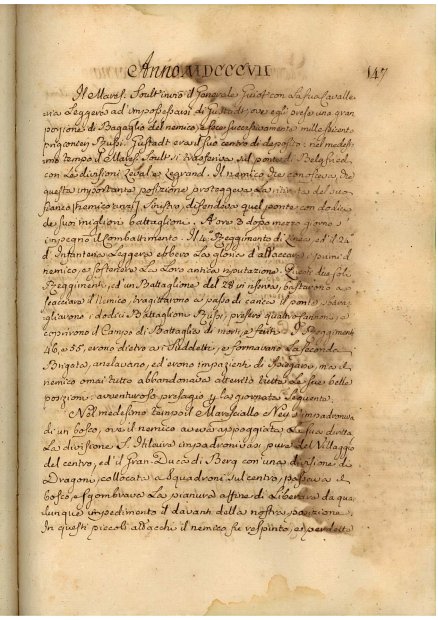 Anno MDCCCVII 147
Il Mares. Soult inviò il Generale Guiot con la sua Cavalle
ria Leggera ad impossessarsi di Gustadt, ove egli prese una gran
porzione di Bagaglio del nemico, e fece successivamente mille seicento
prigionieri Russi. Gustadt era il suo centro di deposito: nel medesi
mo tempo il Mares. Soult si trasferiva sul ponte di Belgfried
con Le divisioni Leval, e Legrand. Il nemico che conosceva che
questa importante posizione proteggeva La ritirata del suo
fianco sinistro, difendeva quel ponte con dodici
de suoi migliori battaglioni. A ore 3 dopo mezzo giorno s'
impegnò il combattimento. Il 4.º Reggimento di Linea, ed il 24
d'Infanteria Leggera ebbero La gloria d'attaccare i primi il
nemico, e sostenere La Loro antica reputazione. Questi due soli
Reggimenti, ed un Battaglione del 28 in riserva, bastarono a
scacciare il Nemico, tragittarono a passo di carica il ponte,
i dodici Battaglioni Russi, presero quattro cannoni, e
coprirono il Campo di Battaglia di morti, e feriti. I Reggimenti
46, e 55, erano dietro a i Suddetti, e formavano La Seconda
Brigata, anelavano, ed erono impazienti di Spiegarsi, ma il
nemico omai tutto abbandonava atterrito tutte Le sue belle
posizioni: avventuroso presagio per la giornata seguente.
Nel medesimo tempo il Maresciallo Ney s'impadroniva
di un bosco, ove il nemico aveva appoggiata La sua diritta
La divisione S. Itilaire impadronivasi pure del Villaggio
del centro, ed il Gran-Duca di Berg con una divisione di
Dragoni collocata a Squadroni sul centro, passava il
bosco, e sgombrava La pianura affine di Liberare da qua
lunque impedimento il davanti della nostra posizione.
In questi piccoli attacchi il nemico fu respinto, e perdette